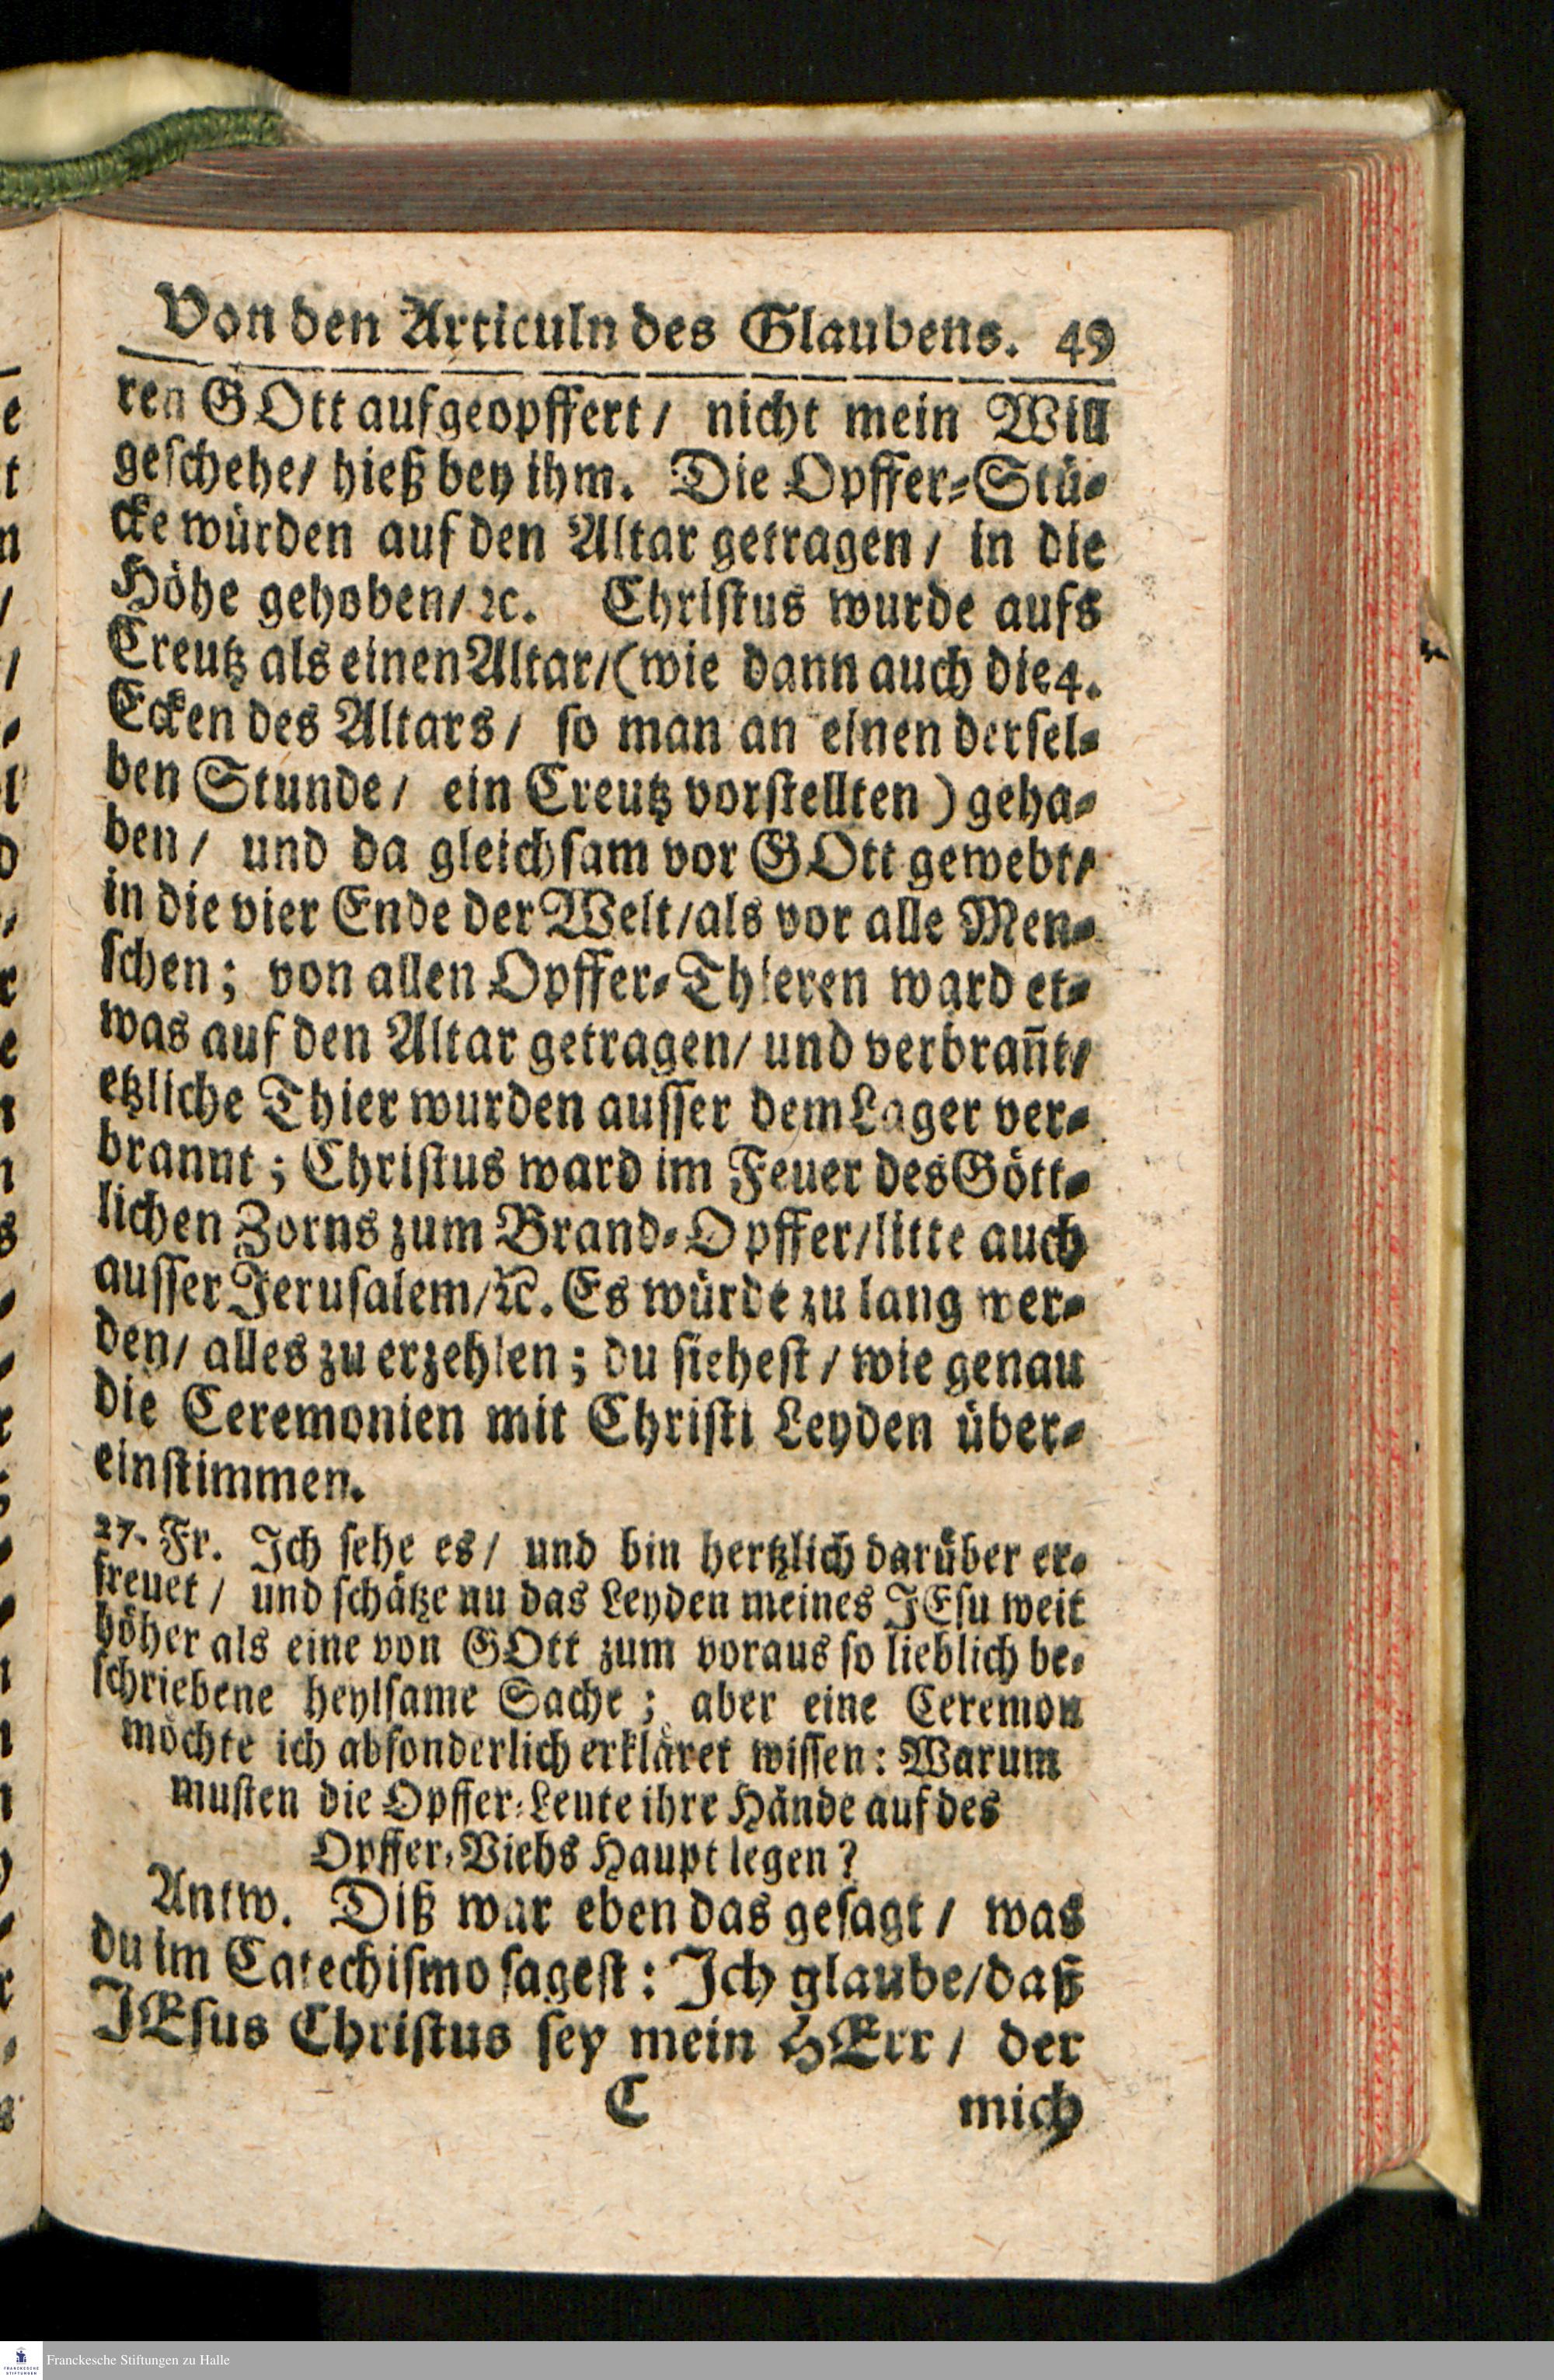 Von den Articuln des Glaubens. 49
ren GOtt aufgeopffert/ nicht mein Will
geschehe/ hieß bey ihm. Die Opffer-Stü-
cke würden auf den Altar getragen/ in die
Höhe gehoben/ ꝛc. Christus wurde aufs
Creutz als einen Altar/ (wie dann auch die 4.
Ecken des Altars/ so man an einen dersel-
ben Stunde/ ein Creutz vorstellten) geha-
ben/ und da gleichsam vor GOtt gewebt/
in die vier Ende der Welt/ als vor alle Men-
schen; von allen Opffer-Thieren ward et-
was auf den Altar getragen/ und verbrañt/
etzliche Thier wurden ausser dem Lager ver-
brannt; Christus ward im Feuer des Gött-
lichen Zorns zum Brand-Opffer/ litte auch
ausser Jerusalem/ ꝛc. Es würde zu lang wer-
den/ alles zu erzehlen; du siehest/ wie genau
die Ceremonien mit Christi Leyden über-
einstimmen.
27. Fr. Ich sehe es/ und bin hertzlich darüber er-
freuet/ und schätze nu das Leyden meines JEsu weit
höher als eine von GOtt zum voraus so lieblich be-
schriebene heylsame Sache; aber eine Ceremon
möchte ich absonderlich erkläret wissen: Warum
musten die Opffer-Leute ihre Hände auf des
Opffer-Viehs Haupt legen?
Antw. Diß war eben das gesagt/ was
du im Catechismo sagest: Ich glaube/ daß
JEsus Christus sey mein HErr/ der
C mich
Franckesche Stiftungen zu Halle